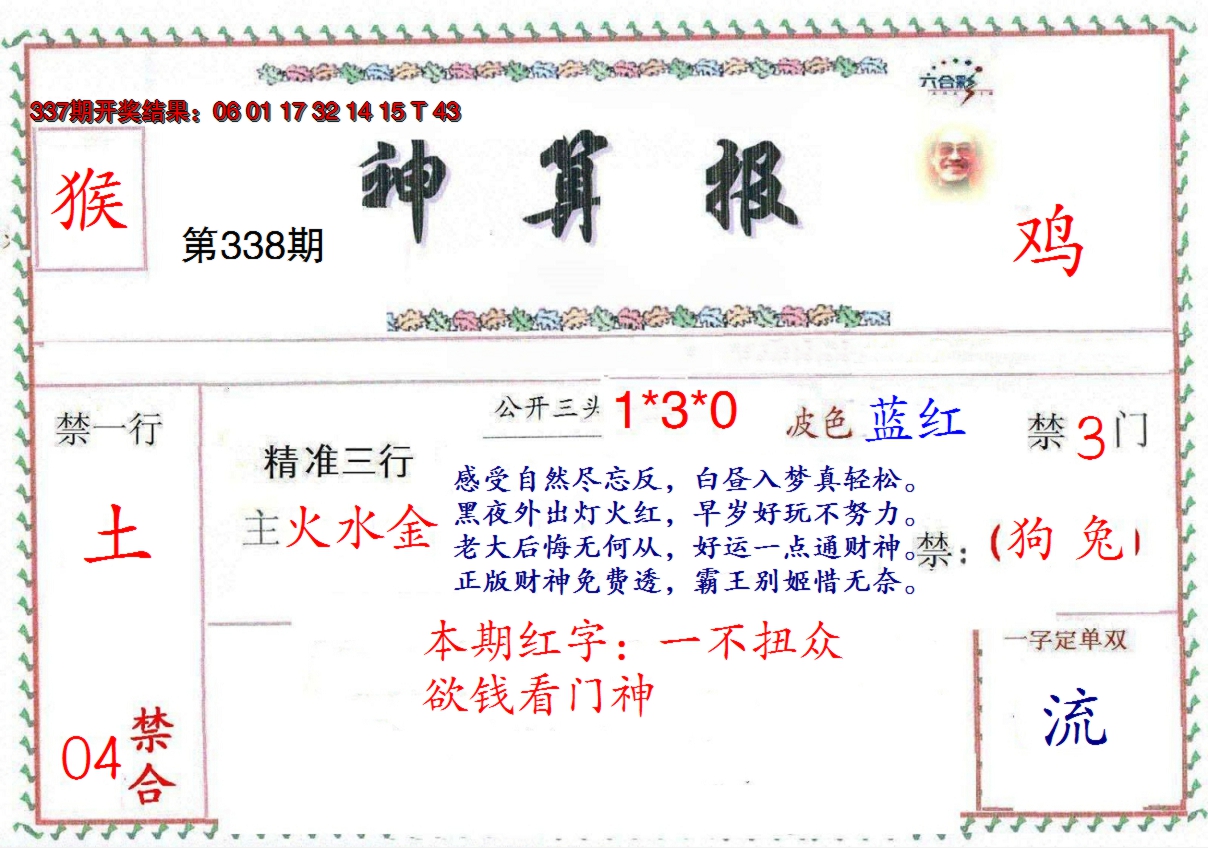 六合彩
337期开奖结果：06 01 17 32 14 15 T 43
神算报
猴
第338期
鸡
公开三头 1*3*0
波色 蓝红
禁3门
禁一行
精准三行
土
主火水金
感受自然尽忘反，白昼入梦真轻松。
黑夜外出灯火红，早岁好玩不努力。
老大后悔无何从，好运一点通财神。
正版财神免费透，霸王别姬惜无奈。
禁：(狗 兔)
本期红字：一不扭众
欲钱看门神
一字定单双
流
04
禁合